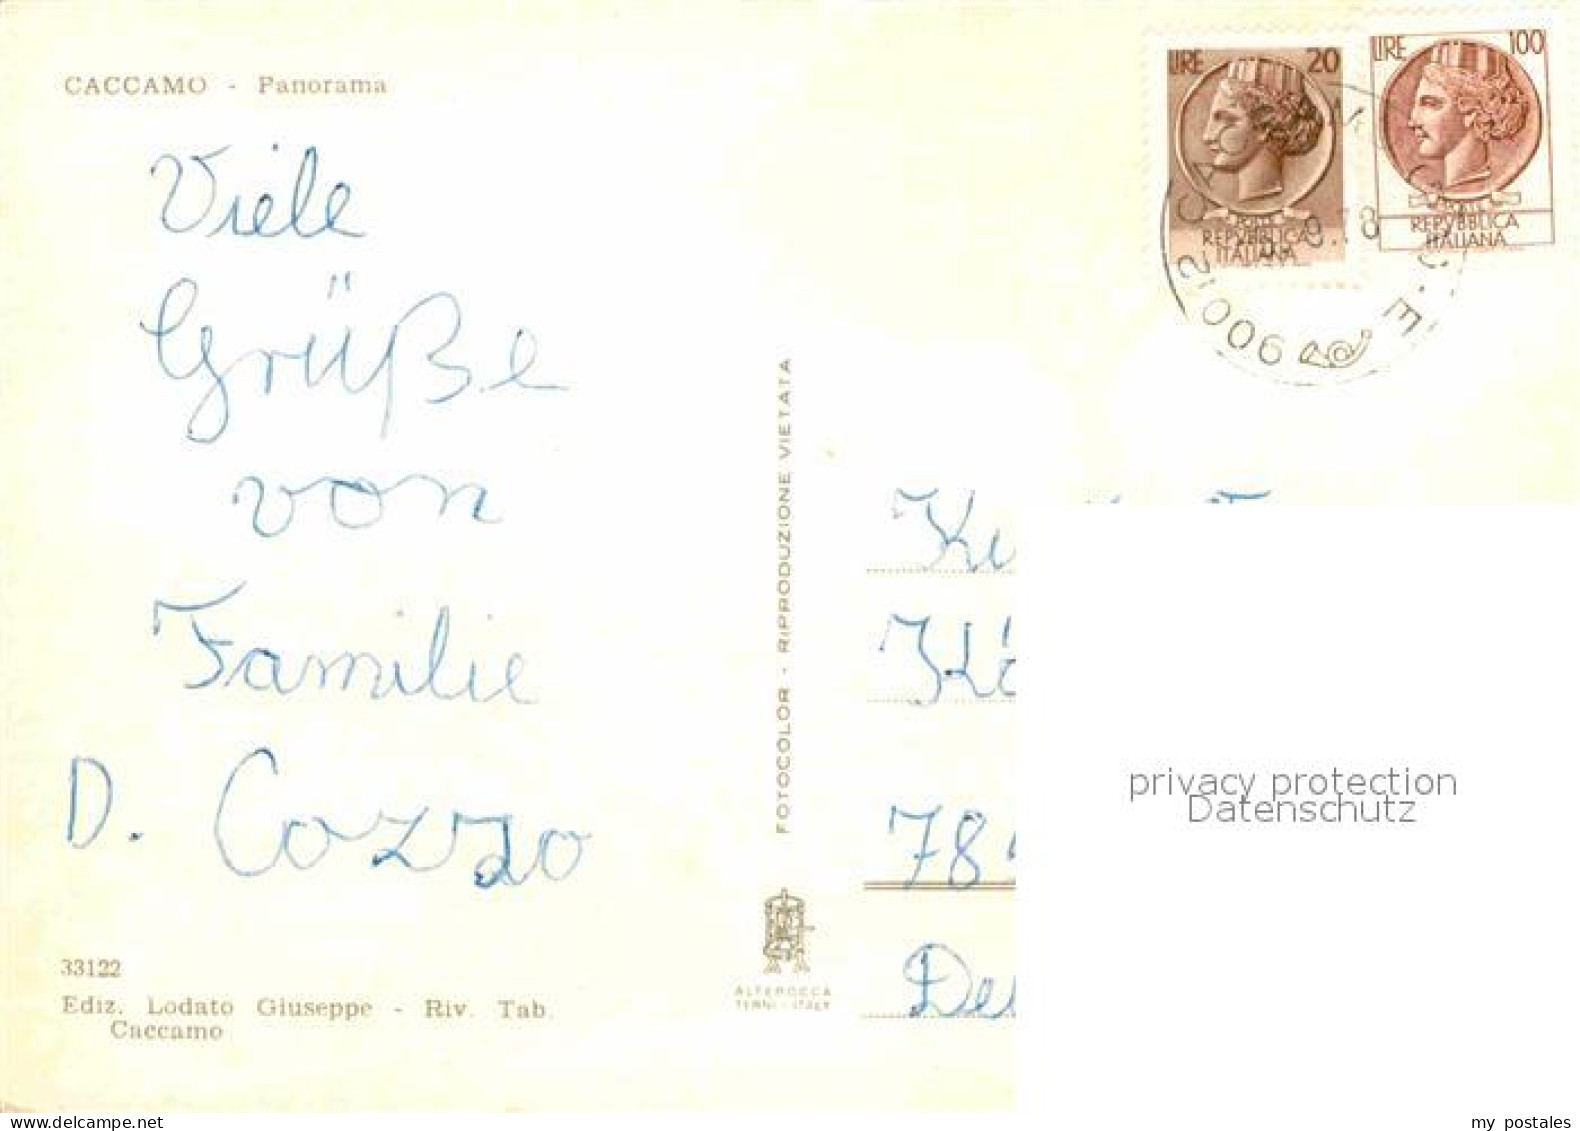 CACCAMO - Panorama
Viele
Grüße
von
Familie
D. Cozzo
33122
Ediz. Lodato Giuseppe - Riv. Tab.
Caccamo
FOTOCOLOR - RIPRODUZIONE VIETATA
ALTEROCCA
TERNI - ITALY
LIRE 20
POSTE
REPVBBLICA
ITALIANA
LIRE 100
POSTE
REPVBBLICA
ITALIANA
90012
78
privacy protection
Datenschutz
my postales